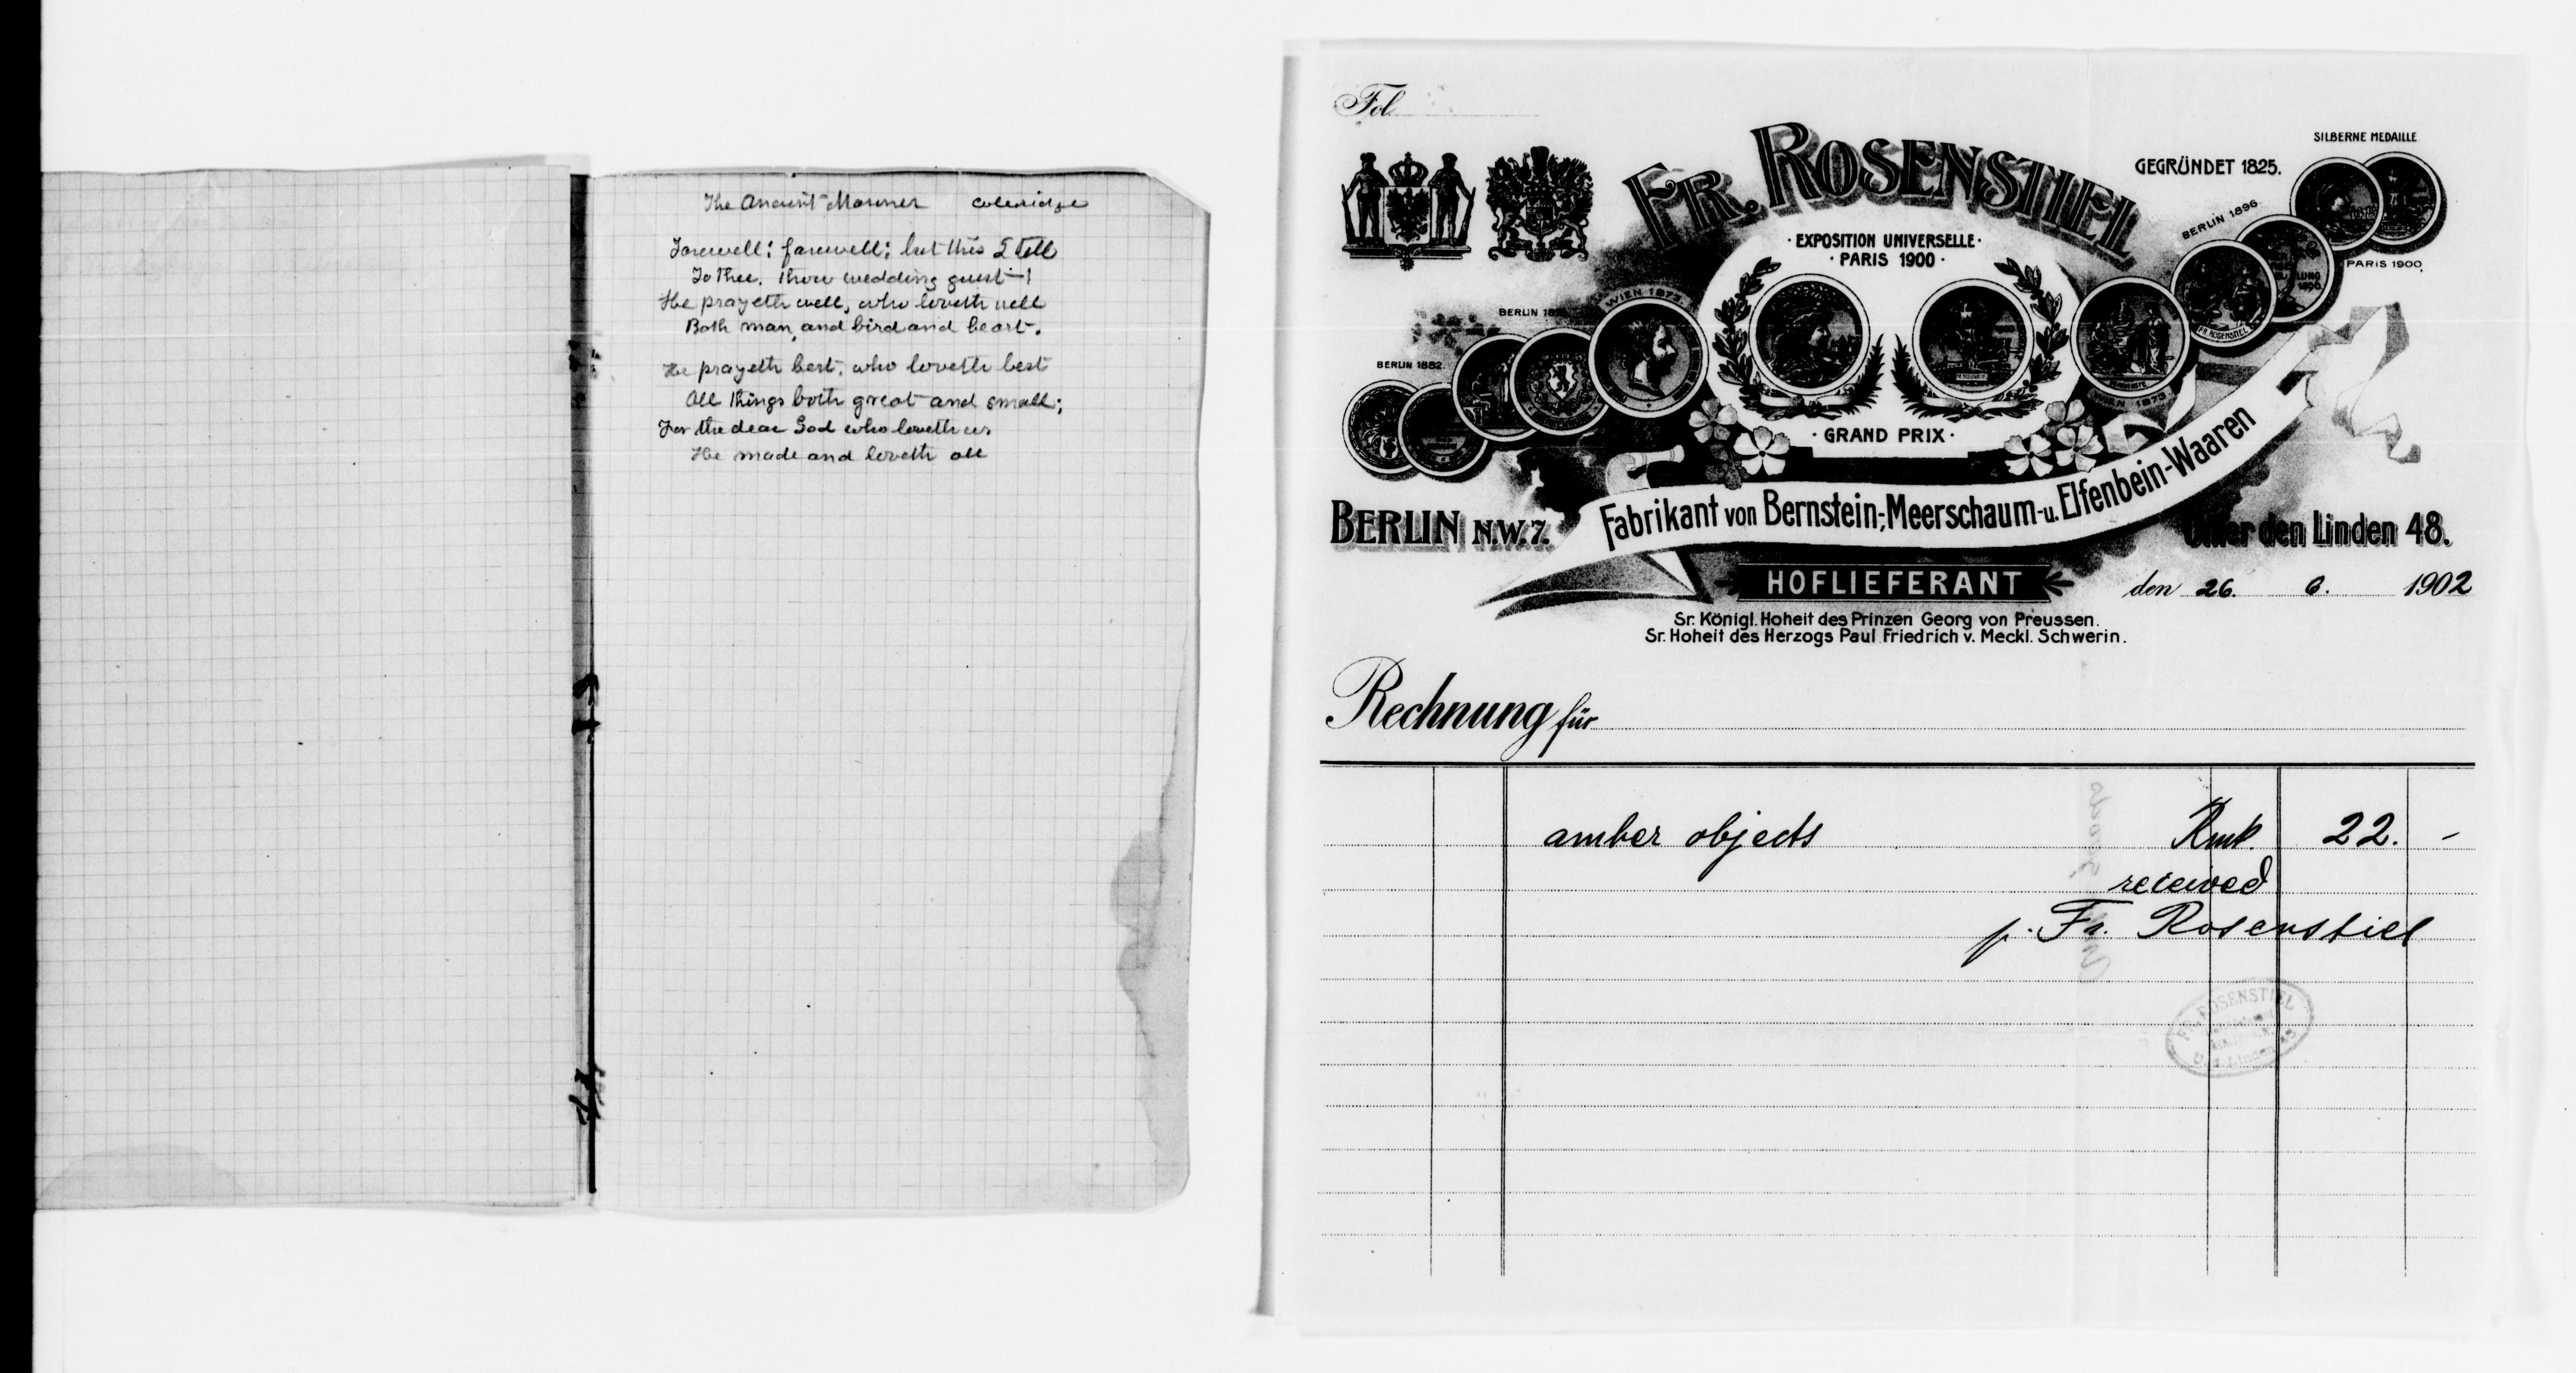 The Ancient Mariner Coleridge
Farewell; farewell; but this I tell
To thee, thou wedding guest—!
He prayeth well, who loveth well
Both man, and bird and beast.
He prayeth best, who loveth best
All things both great and small;
For the dear God who loveth us
He made and loveth all
Fol.
FR. ROSENSTIEL
SILBERNE MEDAILLE
GEGRÜNDET 1825.
BERLIN 1896
PARIS 1900
· EXPOSITION UNIVERSELLE ·
· PARIS 1900 ·
WIEN 1873.
BERLIN
BERLIN 1882.
FR. ROSENSTIEL
WIEN 1873
· GRAND PRIX ·
Fabrikant von Bernstein-, Meerschaum- u. Elfenbein-Waaren
BERLIN N.W.7.
Unter den Linden 48.
HOFLIEFERANT
den 26. 6. 1902
Sr. Königl. Hoheit des Prinzen Georg von Preussen.
Sr. Hoheit des Herzogs Paul Friedrich v. Meckl. Schwerin.
Rechnung für
amber objects Rmk. 22. –
received
p. Fr. Rosenstiel
FR. ROSENSTIEL
U. d. Linden 48